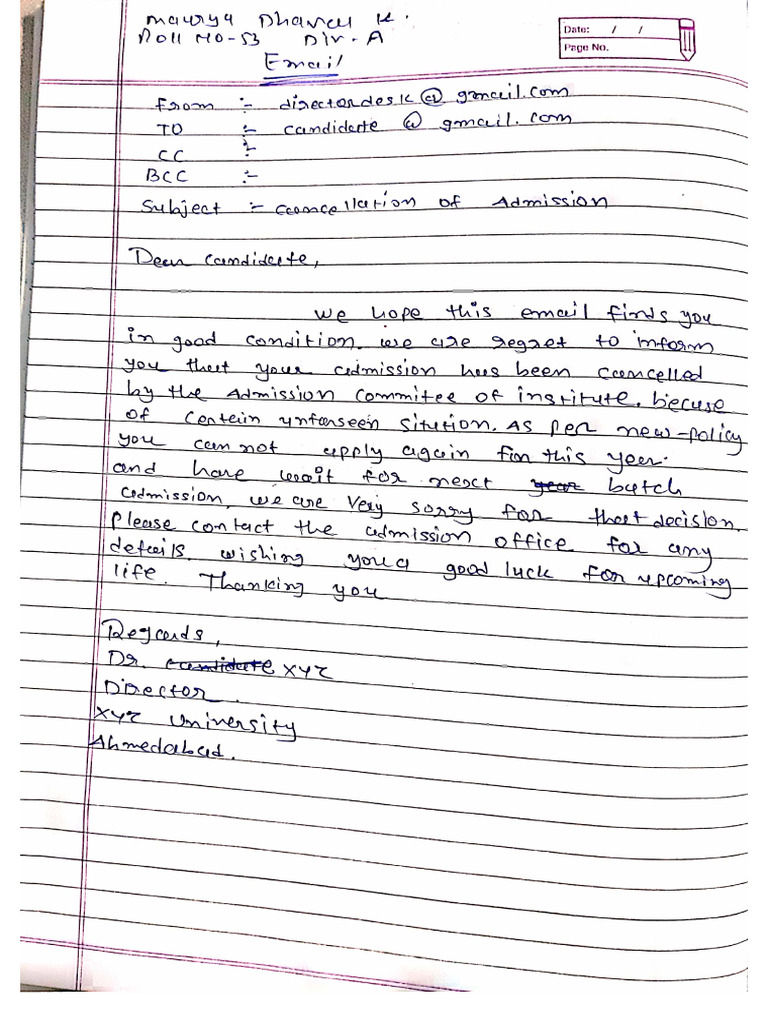 Maurya Dhaval K.
Roll NO-53 Div-A
Date: / /
Page No.
Email
From :- directordesk@gmail.com
TO :- candidate@gmail.com
CC :-
BCC :-
Subject :- cancellation of Admission
Dear candidate,
We hope this email finds you
in good condition. we are regret to inform
you that your admission has been cancelled
by the Admission Commitee of institute. becuse
of certain unforseen sitution. As per new-policy
you can not apply again for this year.
and have wait for next year batch
admission. we are very sorry for that decision.
Please contact the admission office for any
details. wishing you a good luck for upcoming
life. Thanking you
Regards,
Dr. candidate XYZ
Director.
XYZ University
Ahmedabad.